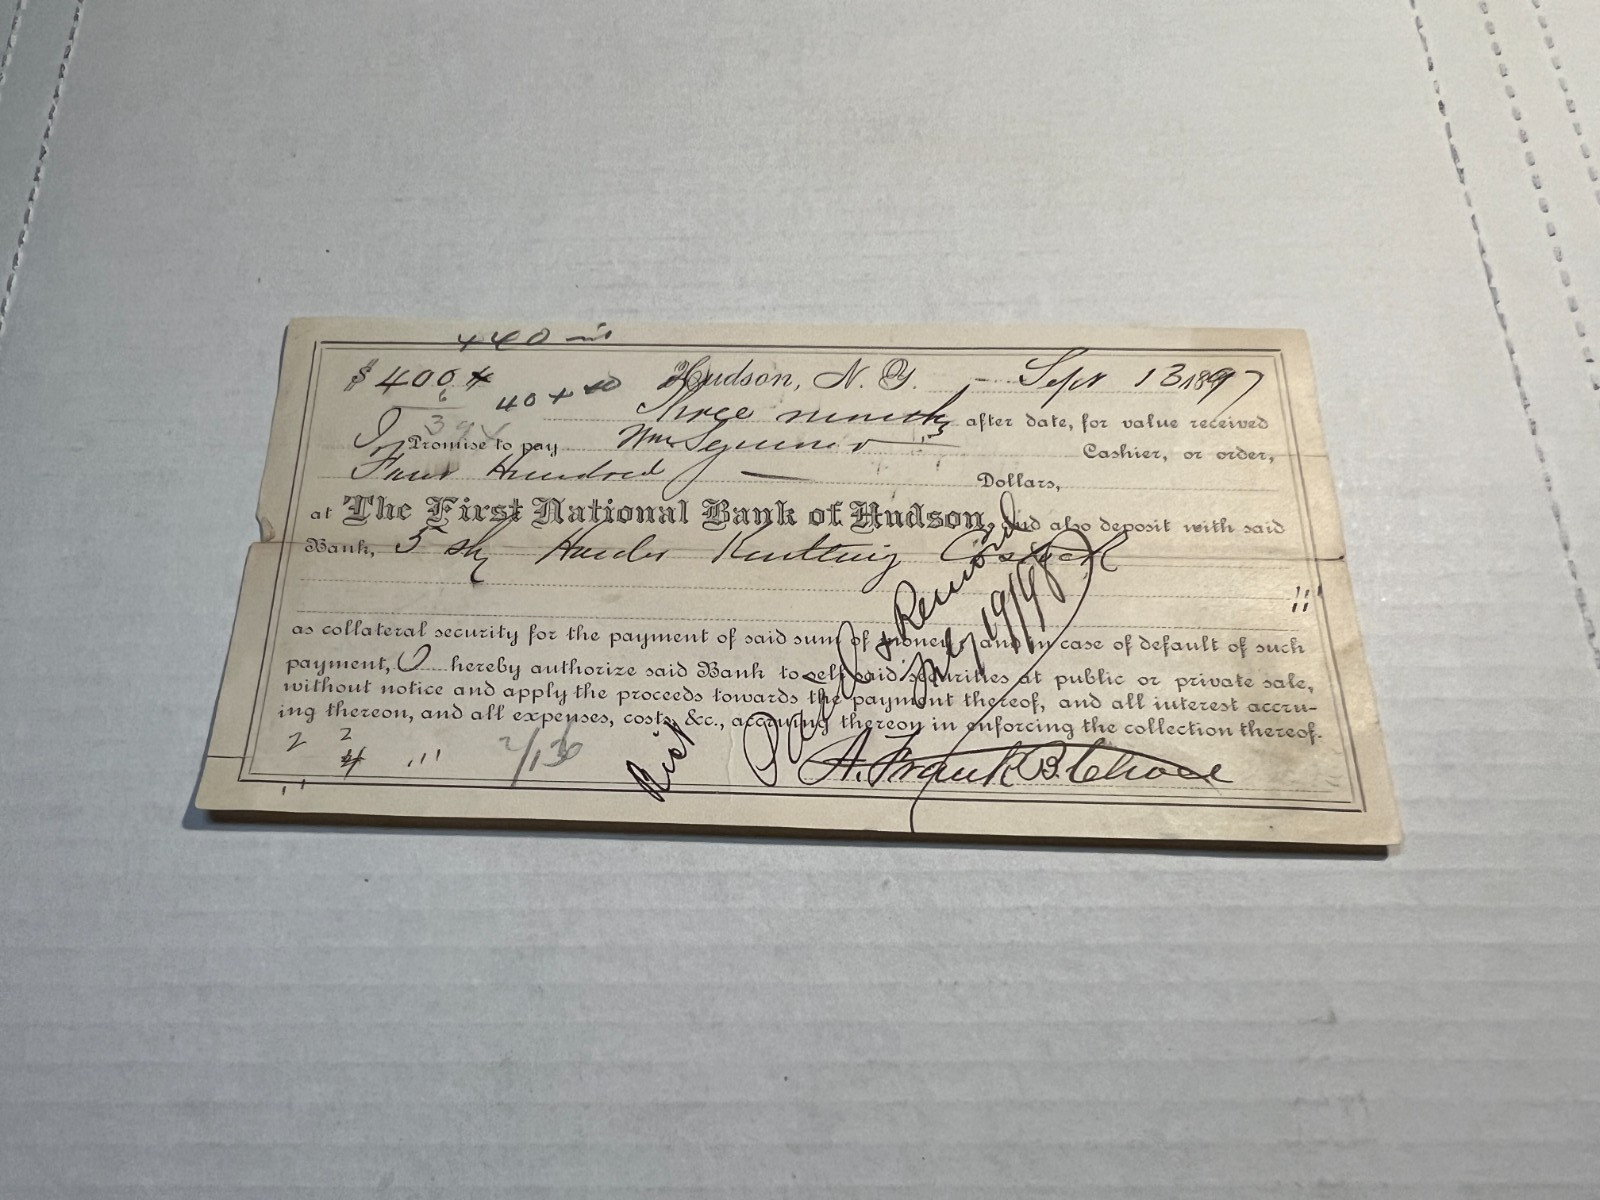 440
$ 400 Hudson, N. Y. Sept 13 1897
40 +
Three months after date, for value received
I Promise to pay Wm Seymour Cashier, or order,
Four Hundred — Dollars,
at The First National Bank of Hudson, and also deposit with said
Bank, 5 sh Co Stock
as collateral security for the payment of said sum of money, and in case of default of such
payment, I hereby authorize said Bank to sell said securities at public or private sale,
without notice and apply the proceeds towards the payment thereof, and all interest accru-
ing thereon, and all expenses, costs, &c., accruing thereon in enforcing the collection thereof.
2 2
4
A. Frank B. Chace